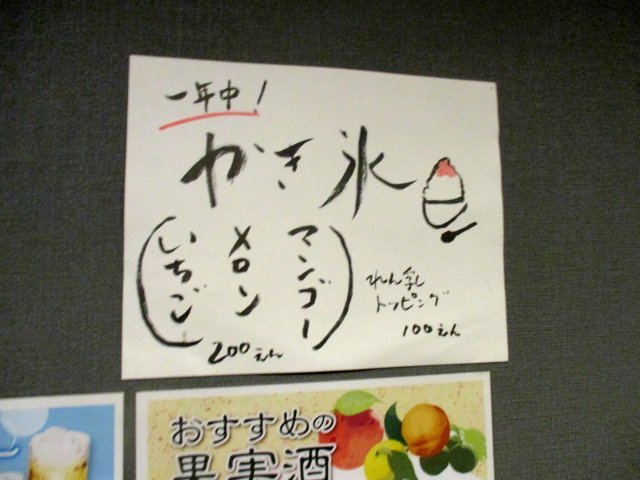 一年中!
かき氷
マンゴー
メロン
いちご
200えん
れん乳
トッピング
100えん
おすすめの
果実酒